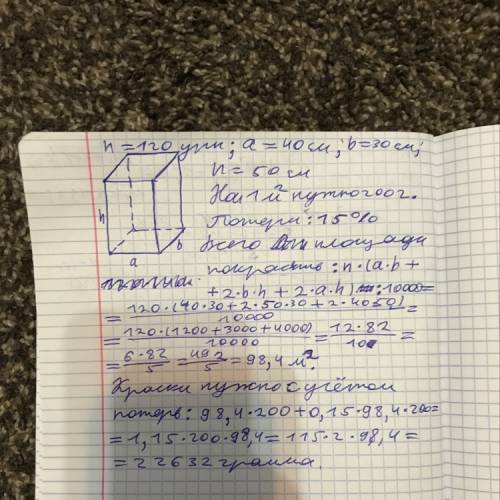 n=120 упк; a=40см; b=30см;
h=50см
На 1 м² нужно 200г.
Потери: 15%
h
b
a
Всего площади
покрасить: n·(a·b+
+2·b·h+2·a·h) :10000=
= 120·(40·30+2·50·30+2·4050)/10000 =
= 120·(1200+3000+4000)/10000 = 12·82/10 =
= 6·82/5 = 492/5 = 98,4 м².
Краски нужно с учётом
потерь: 98,4·200+0,15·98,4·200=
=1,15·200·98,4=115·2·98,4=
=22632 грамма.